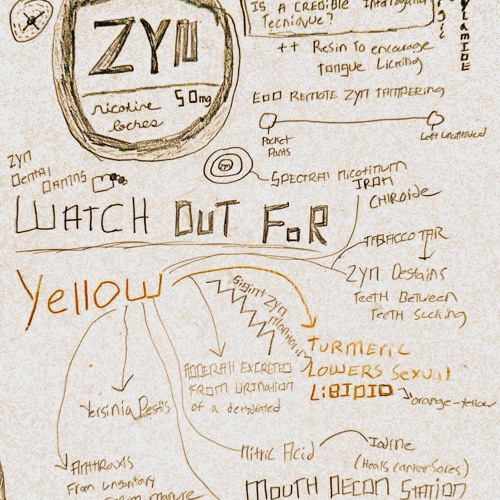 IS A CREDIBLE Interrogation
Tecnique?
++ Resin to encourage
tongue Licking
ZYN
nicotine 50mg
EOD REMOTE ZYN TAMPERING
Pocket
Pants
Left unattended
ZYN
Dental
ZYN
SPECTRAL nicotinum
IRON
CHLORIDE
WATCH OUT FOR
TABACCO TAR
ZYN Destains
TEETH Between
TEETH Sucking
Yellow
SIGINT ZYN
TURMERIC
LOWERS Sexual
LiBIDIO
orange-yellow
ADDERALL EXCRETED
FROM URINATION
of a dehydrated
Yersinia Pestis
Nitric Acid
Iodine
(Heals canker sores)
ANTHRAXIS
From unsanitary
manure
MOUTH DECON STATION